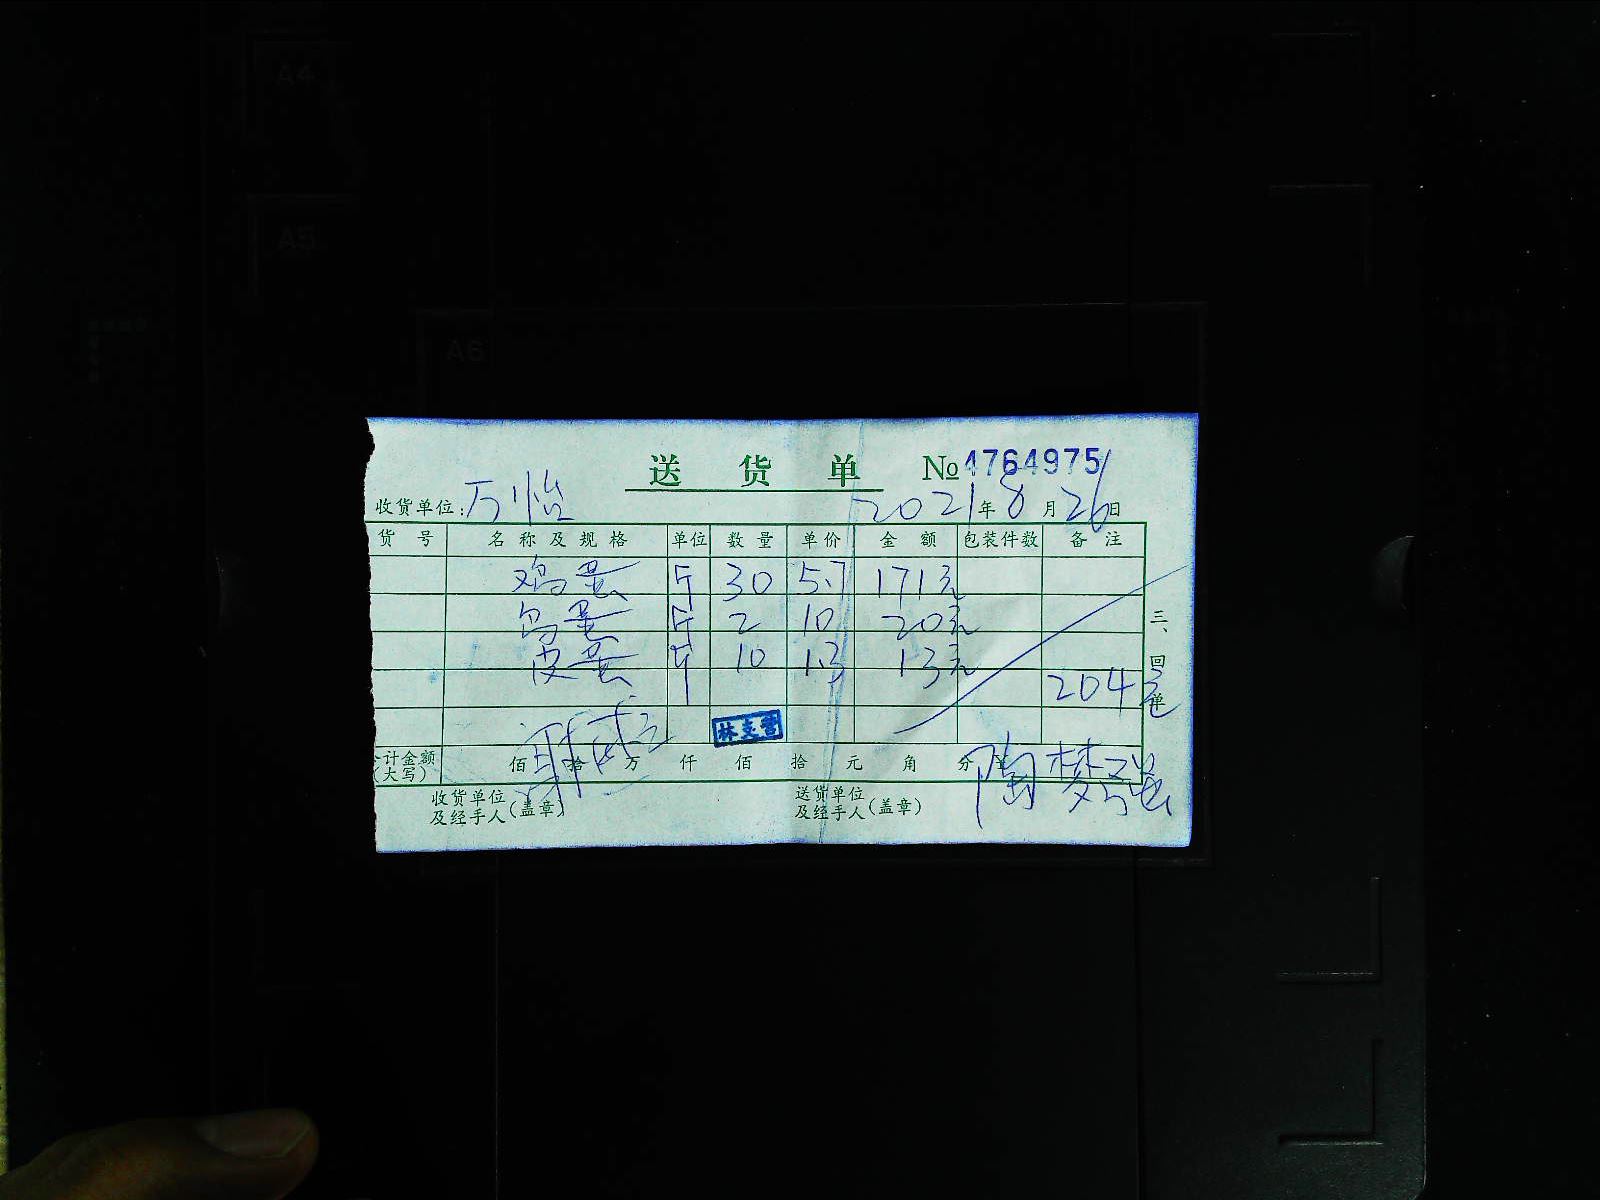 A4
A5
A6
送 货 单 №4764975
收货单位:万怡 2021年8月26日
货 号 名 称 及 规 格 单位 数 量 单价 金 额 包装件数 备 注
鸡蛋 斤 30 5.7 171元
鸟蛋 斤 2 10 20元
皮蛋 10 1.3 13元
204元
三、回单
林支营
合计金额(大写) 佰 拾 万 仟 佰 拾 元 角 分
收货单位及经手人(盖章) 送货单位及经手人(盖章)
陶梦